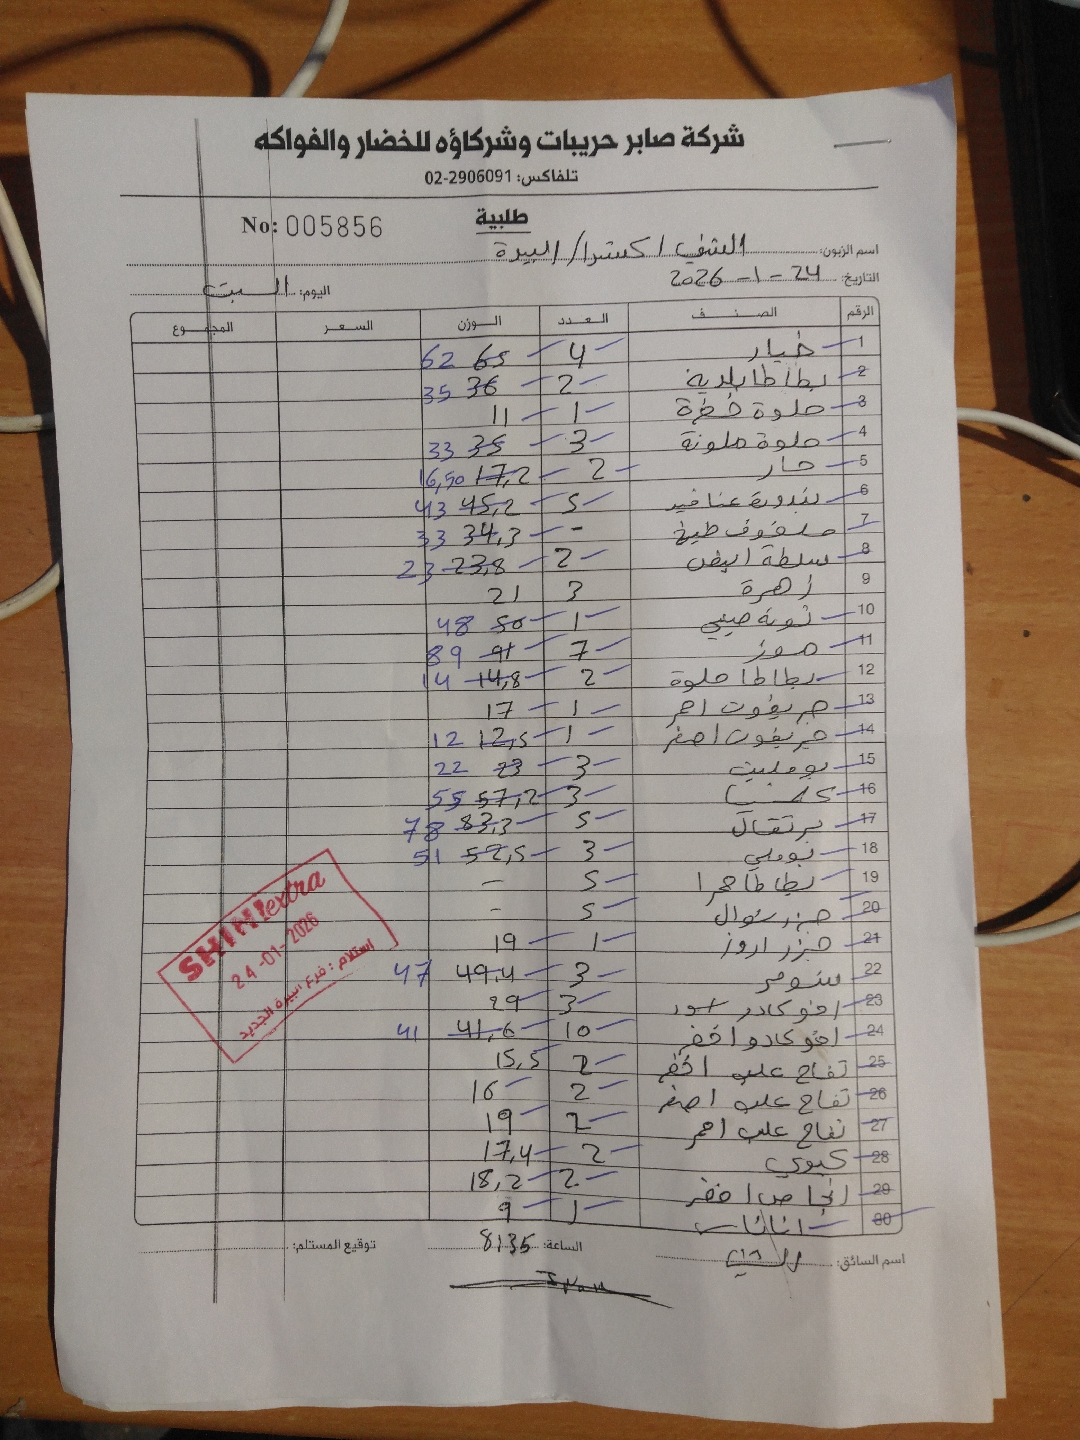 شركة صابر حريبات وشركاؤه للخضار والفواكه
تلفاكس: 02-2906091
طلبية
No: 005856
اسم الزبون: الشني اكسترا / البيرة
التاريخ: 24 - 1 - 2026
اليوم: السبت
الرقم الصنف العدد الوزن السعر المجموع
1 خيار 4 65 62
2 بطاطا بلدية 2 36 35
3 حلوة خضرة 1 11
4 حلوة ملونة 3 35 33
5 حار 2 17,2 16,50
6 بندورة عناقيد 5 45,2 43
7 ملفوف طبيخ - 34,3 33
8 سلطة ابيض 2 23,8 23
9 زهرة 3 21
10 ثومة صيني 1 50 48
11 موز 7 91 89
12 بطاطا حلوة 2 14,8 14
13 جريفوت احمر 1 17
14 جريفوت اصفر 1 12,5 12
15 بوملين 3 23 22
16 3 57,2 55
17 برتقال 5 83,3 78
18 بوملي 3 52,5 51
19 بطاطا حمرا 5 -
20 جزر 5 -
21 جزر اروز 1 19
22 3 49,4 47
23 افوكادو اسود 3 29
24 افوكادو اخضر 10 41,6 41
25 تفاح علب اخضر 2 15,5
26 تفاح علب اصفر 2 16
27 تفاح علب احمر 2 19
28 كيوي 2 17,4
29 انجاص اخضر 2 18,2
30 اناناس 1 9
SHINI extra
24-01-2026
استلام: فرع البيرة الجديد
اسم السائق:
الساعة: 8:35
توقيع المستلم: